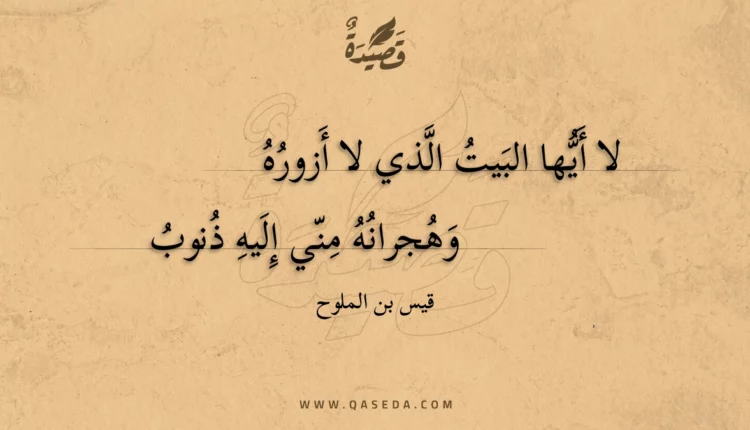 قَصِيْدَةٌ
لا أَيُّها البَيتُ الَّذي لا أَزورُهُ
وَهُجرانُهُ مِنّي إِلَيهِ ذُنوبُ
قيس بن الملوح
WWW.QASEDA.COM